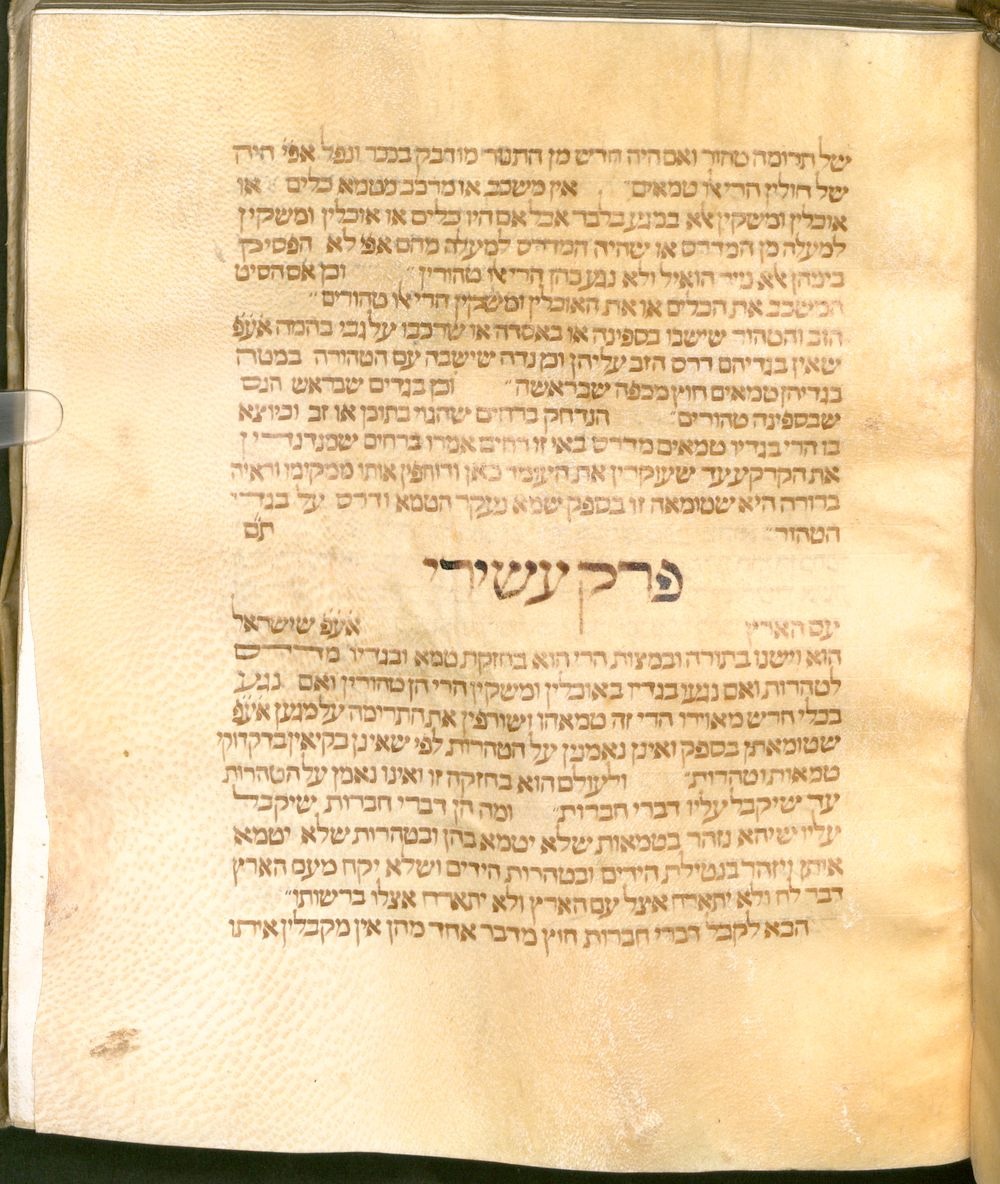 של תרומה טהור ואם היה חרש מן התנור מודבק בככר ונפל אפי' היה
של חולין הרי אלו טמאים׳׳ אין משכב או מרכב מטמא כלים או
אוכלין ומשקין אלא במגע בלבד אבל אם היו כלים או אוכלין ומשקין
למעלה מן המדרס או שהיה המדרס למעלה מהם אפי' לא הפסיק
ביניהן אלא נייר הואיל ולא נגע בהן הרי אלו טהורין׳׳ וכן אם הסיט
המשכב את הכלים או את האוכלין ומשקין הרי אלו טהורים׳׳
הזב והטהור שישבו בספינה או באסדה או שרכבו על גבי בהמה אע'פ'
שאין בגדיהם דרס הזב עליהן וכן נדה שישבה עם הטהורה במטה
בגדיהן טמאים חוץ מכפה שבראשה׳׳ וכן בגדים שבראש הנס
שבספינה טהורים׳׳ הנדחק ברחים שהגוי בתוכן או זב וכיוצא
בו הרי בגדיו טמאים מדרס באי זו רחים אמרו ברחים שמנדנדין
את הקרקע עד שעוקרין את העומד כאן ודוחפין אותו ממקומו וראיה
ברורה היא שטומאה זו בספק שמא נעקר הטמא ודרס על בגדי
הטהור׳׳ ת'ם
פרק עשירי
עם הארץ אע'פ' שישראל
הוא וישנו בתורה ובמצות הרי הוא בחזקת טמא ובגדיו מדרס
לטהרות ואם נגעו בגדיו באוכלין ומשקין הרי הן טהורין ואם נגע
בכלי חרש מאוירו הרי זה טמאהו ושורפין את התרומה על מגען אע'פ'
שטומאתן בספק ואינן נאמנין על הטהרות לפי שאינן בקיאין בדקדוק
טמאות וטהרות׳׳ ולעולם הוא בחזקה זו ואינו נאמן על הטהרות
עד שיקבל עליו דברי חברות׳׳ ומה הן דברי חברות שיקבל
עליו שיהא נזהר בטמאות שלא יטמא בהן ובטהרות שלא יטמא
אותן ויזהר בנטילת הידים ובטהרות הידים ושלא יקח מעם הארץ
דבר לח ולא יתארח אצל עם הארץ ולא יתארח אצלו ברישותו׳׳
הבא לקבל דברי חברות חוץ מדבר אחד מהן אין מקבלין אותו